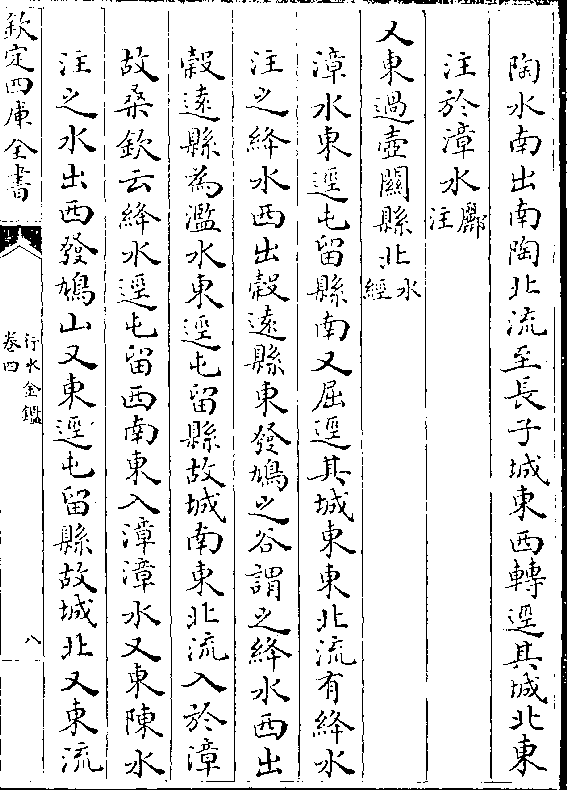 陶水南出南陶北流至長子城東西轉逕其城北東
注於漳水酈注
又東過壺關縣北水經
漳水東逕屯留縣南又屈逕其城東東北流有絳水
注之絳水西出穀遠縣東發鳩之谷謂之絳水西出
穀遠縣為濫水東逕屯留縣故城南東北流入於漳
故桑欽云絳水逕屯留西南東入漳漳水又東陳水
注之水出西發鳩山又東逕屯留縣故城北又東流
欽定四庫全書
行水金鑑
卷四
八